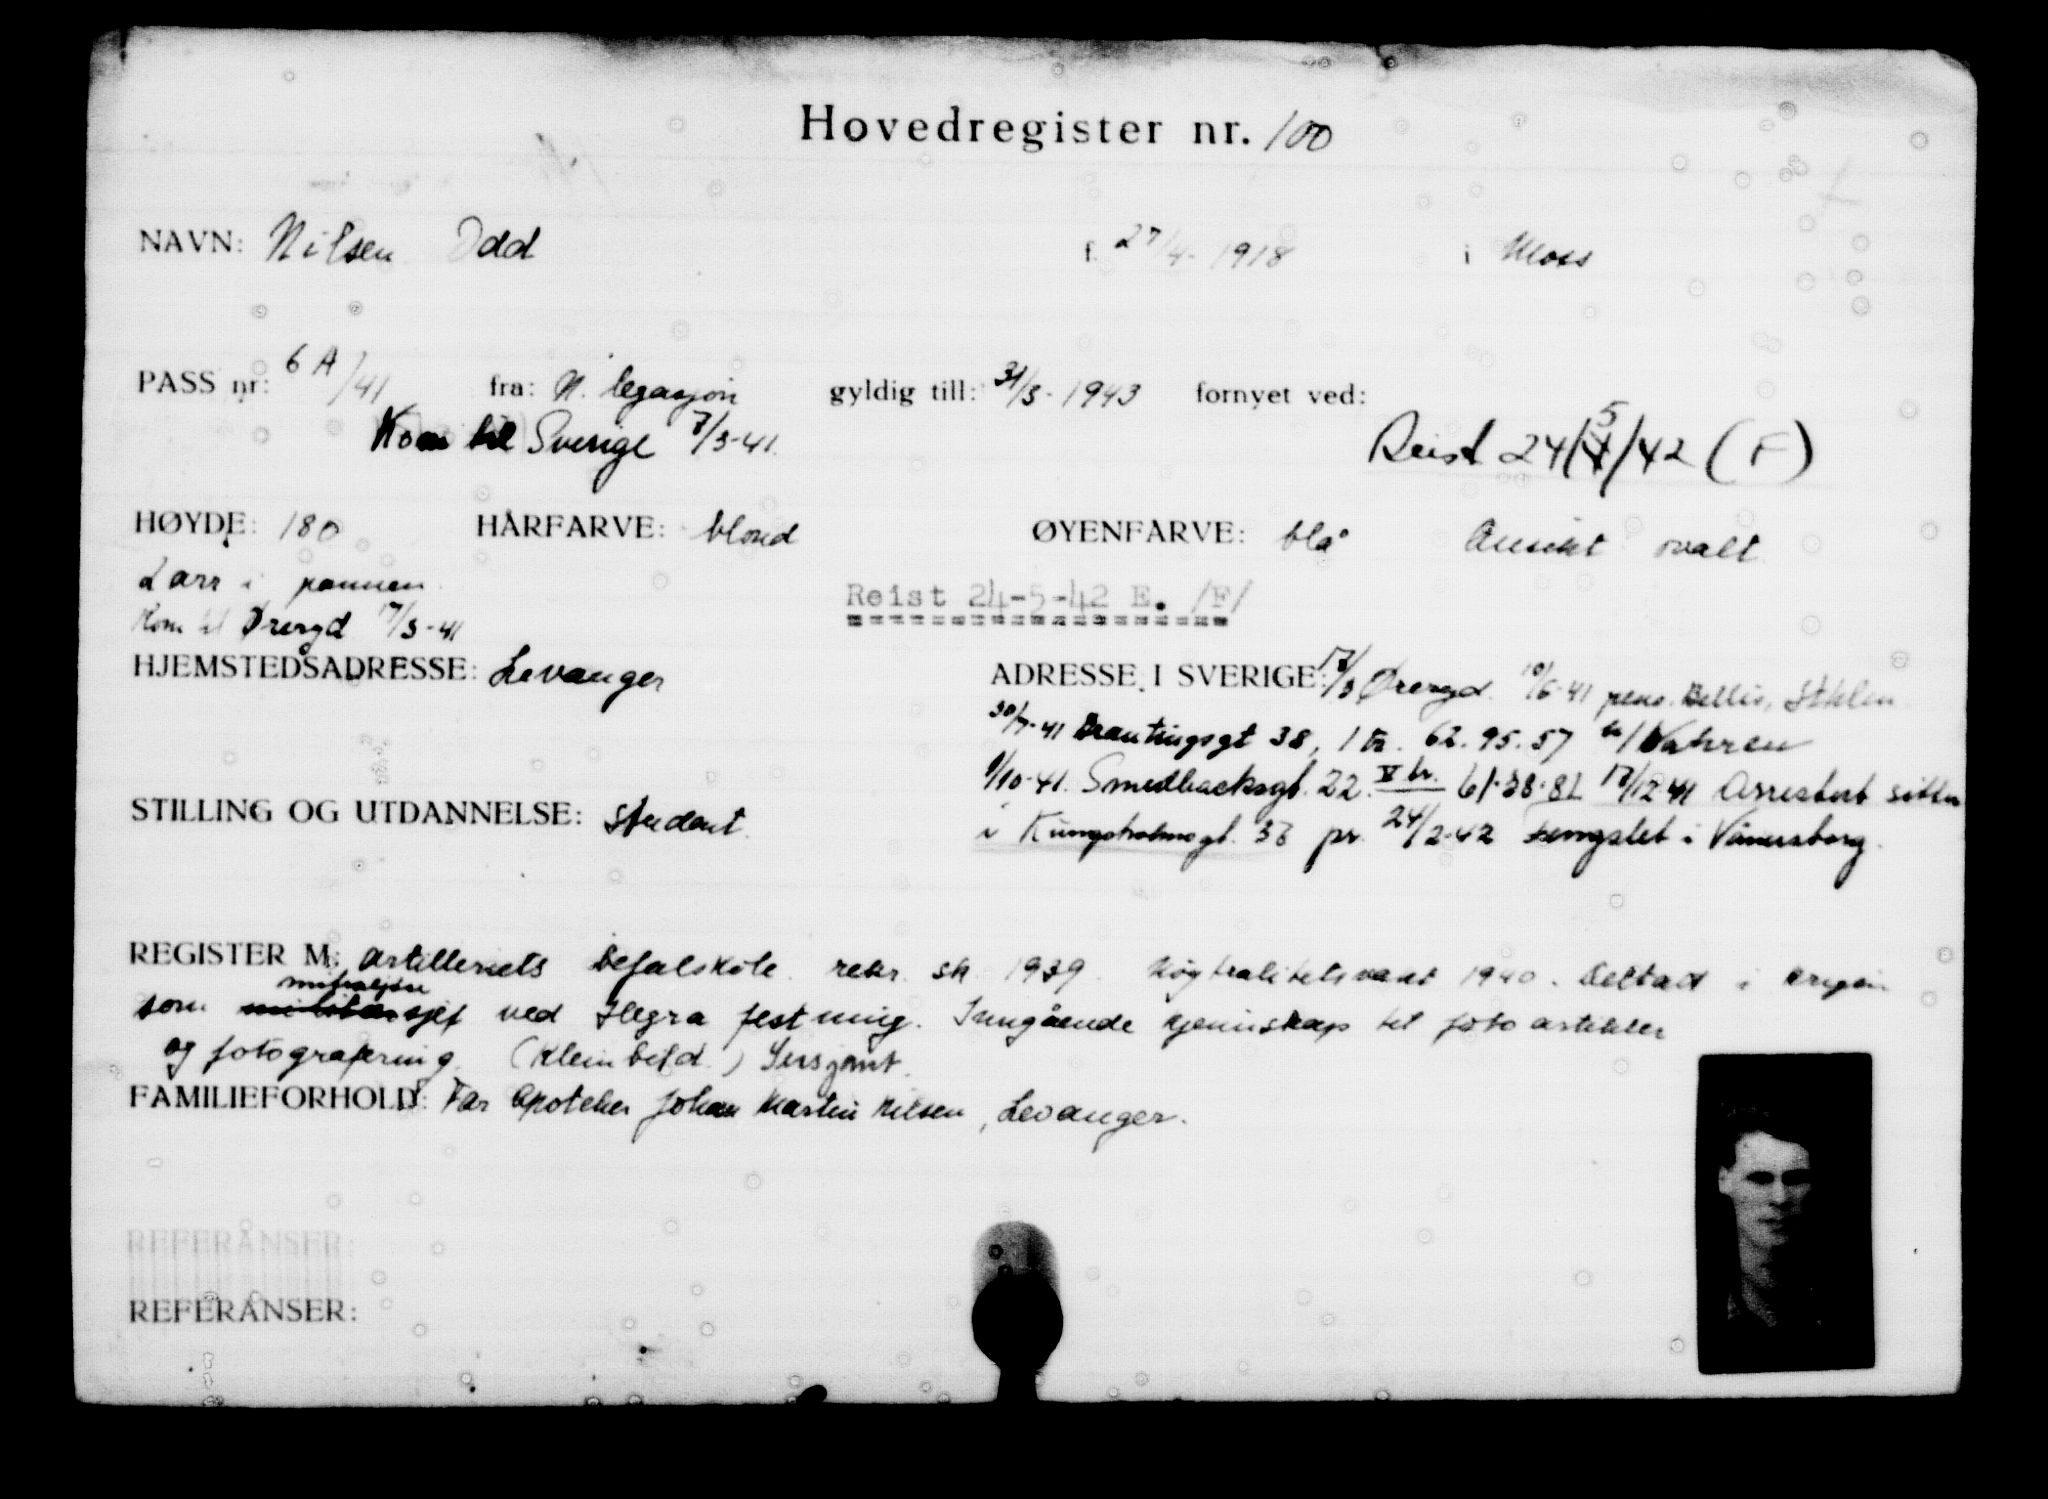 Hovedregister nr. 100
NAVN: Nilsen Odd f. 27/4-1918 i Moss
PASS nr: 6A/41 fra: N. legasjon gyldig till: 31/3-1943 fornyet ved:
Kom til Sverige 7/3-41. Reist 24/5/42 (F)
HØYDE: 180 HÅRFARVE: blond ØYENFARVE: blå Ansikt ovalt
I arr i pannen
Reist 24-5-42 E. /F/
Kom til Øreryd 17/3-41
HJEMSTEDSADRESSE: Levanger ADRESSE I SVERIGE: 17/3 Øreryd. 10/6-41 pens. Bellis, Sthlm
30/7-41 Brantingsgt 38, 1 tr. 62.95.57
1/10-41. Smedbacksgt. 22. V tr. 61.28.81 17/12 41 Arrestert sitter
STILLING OG UTDANNELSE: student.
i Kungsholmsgt. 37 pr. 24/2-42 Fengslet i Vänersborg.
REGISTER M: Artilleriets befalskole rekr. sk 1939. Nøytralitetsvakt 1940. Deltad i krigen
som militær mitraljøse sjef ved Hegra festning. Inngående kjennskap til foto artikler
og fotografering. (Kleinbild.) Sersjant.
FAMILIEFORHOLD: Far Apoteker Johan Martin Nilsen, Levanger.
REFERANSER:
REFERANSER: